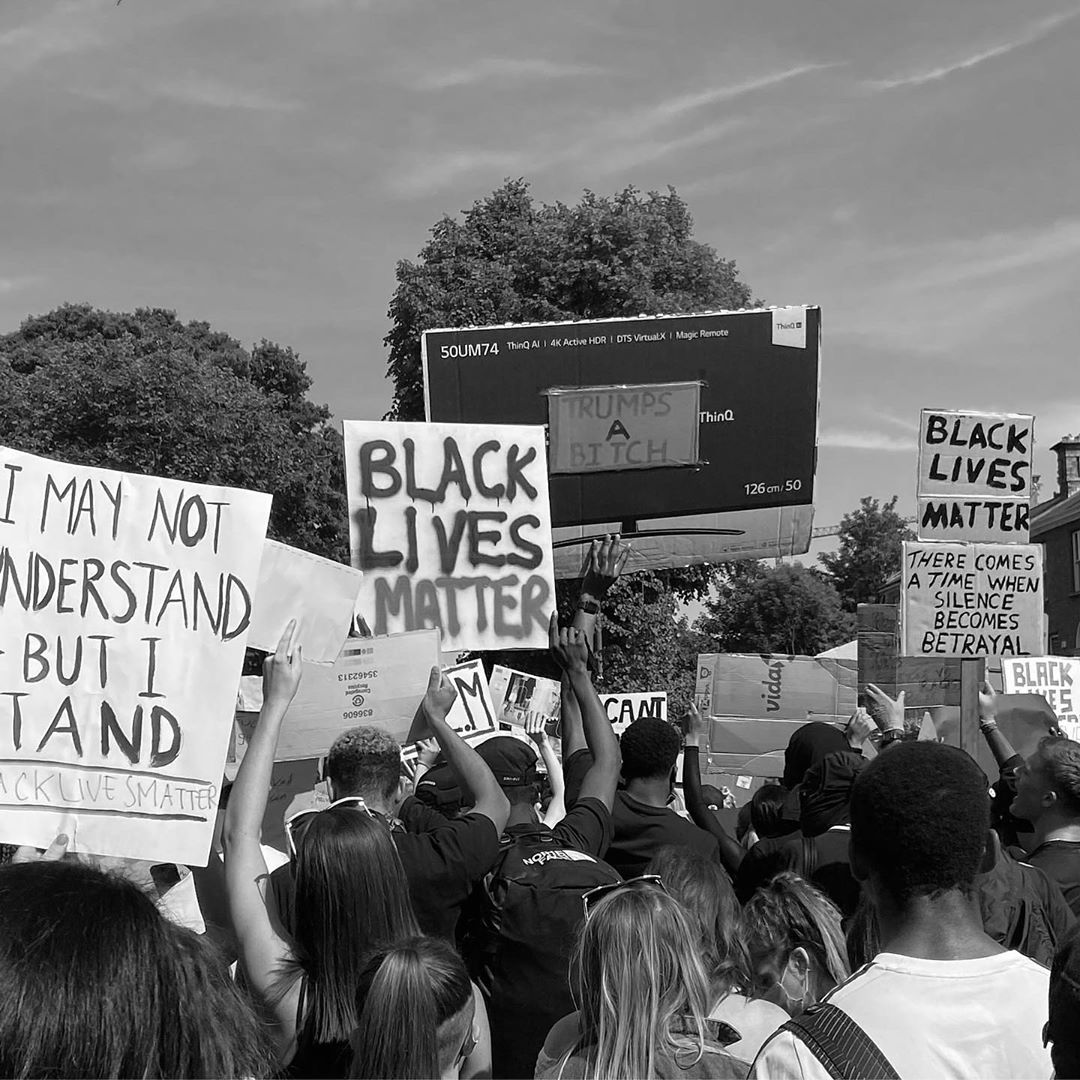 I MAY NOT
UNDERSTAND
BUT I
STAND
BLACKLIVESMATTER
BLACK
LIVES
MATTER
50UM74 ThinQ AI | 4K Active HDR | DTS Virtual:X | Magic Remote
ThinQ AI
TRUMPS
A
BITCH
ThinQ
126 cm / 50
BLACK
LIVES
MATTER
THERE COMES
A TIME WHEN
SILENCE
BECOMES
BETRAYAL
BLACK
LIVES
35462313
836606
L.M
CANT
vida
NORTH
FACE